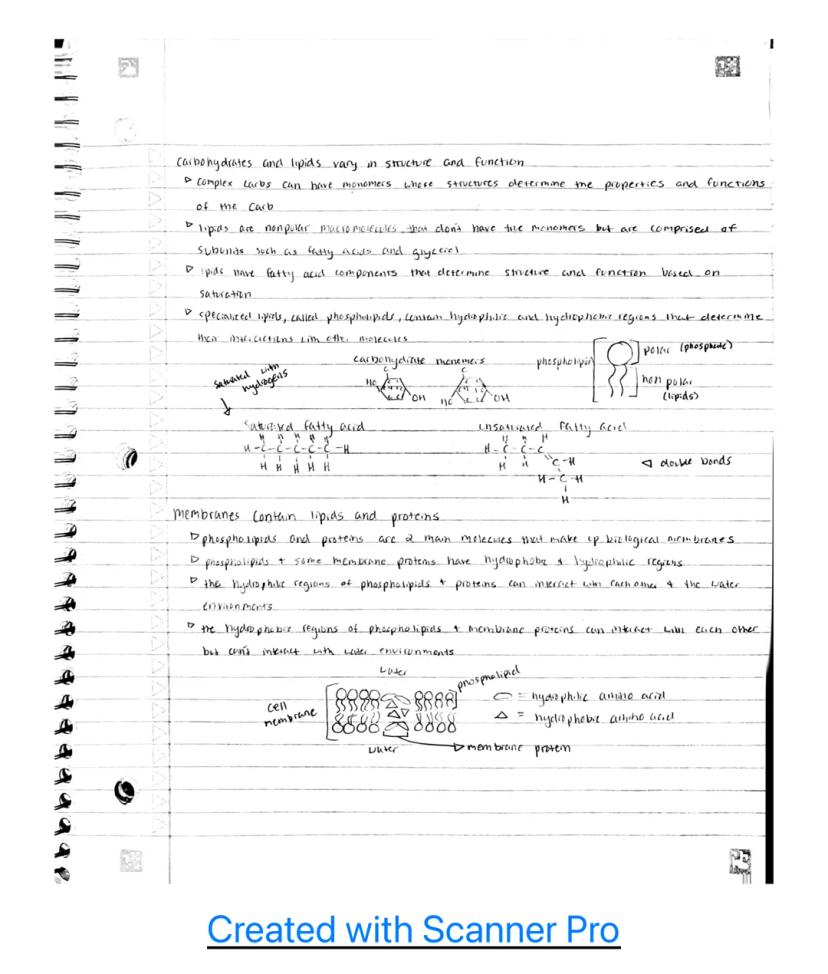 Carbohydrates and lipids vary in structure and function
▷ complex carbs can have monomers whose structures determine the properties and functions
of the carb
▷ lipids are nonpolar macromolecules that don't have true monomers but are comprised of
subunits such as fatty acids and glycerol
▷ lipids have fatty acid components that determine structure and function based on
saturation
▷ specialized lipids, called phospholipids, contain hydrophilic and hydrophobic regions that determine
their interactions with other molecules
carbohydrate monomers
phospholipid
polar (phosphate)
non polar
(lipids)
saturated with
hydrogens
HO OH HO OH
Saturated fatty acid
unsaturated fatty acid
H H H H H
H-C-C-C-C-C-H
H H H H H
H H H
H-C-C-C
H H C-H
H-C-H
H
◁ double bonds
Membranes contain lipids and proteins
▷ phospholipids and proteins are 2 main molecules that make up biological membranes
▷ phospholipids + some membrane proteins have hydrophobic & hydrophilic regions
▷ the hydrophilic regions of phospholipids + proteins can interact with each other & the water
environments
▷ the hydrophobic regions of phospholipids + membrane proteins can interact with each other
but can't interact with water environments
water
phospholipid
cell
membrane
= hydrophilic amino acid
△ = hydrophobic amino acid
water
membrane protein
Created with Scanner Pro